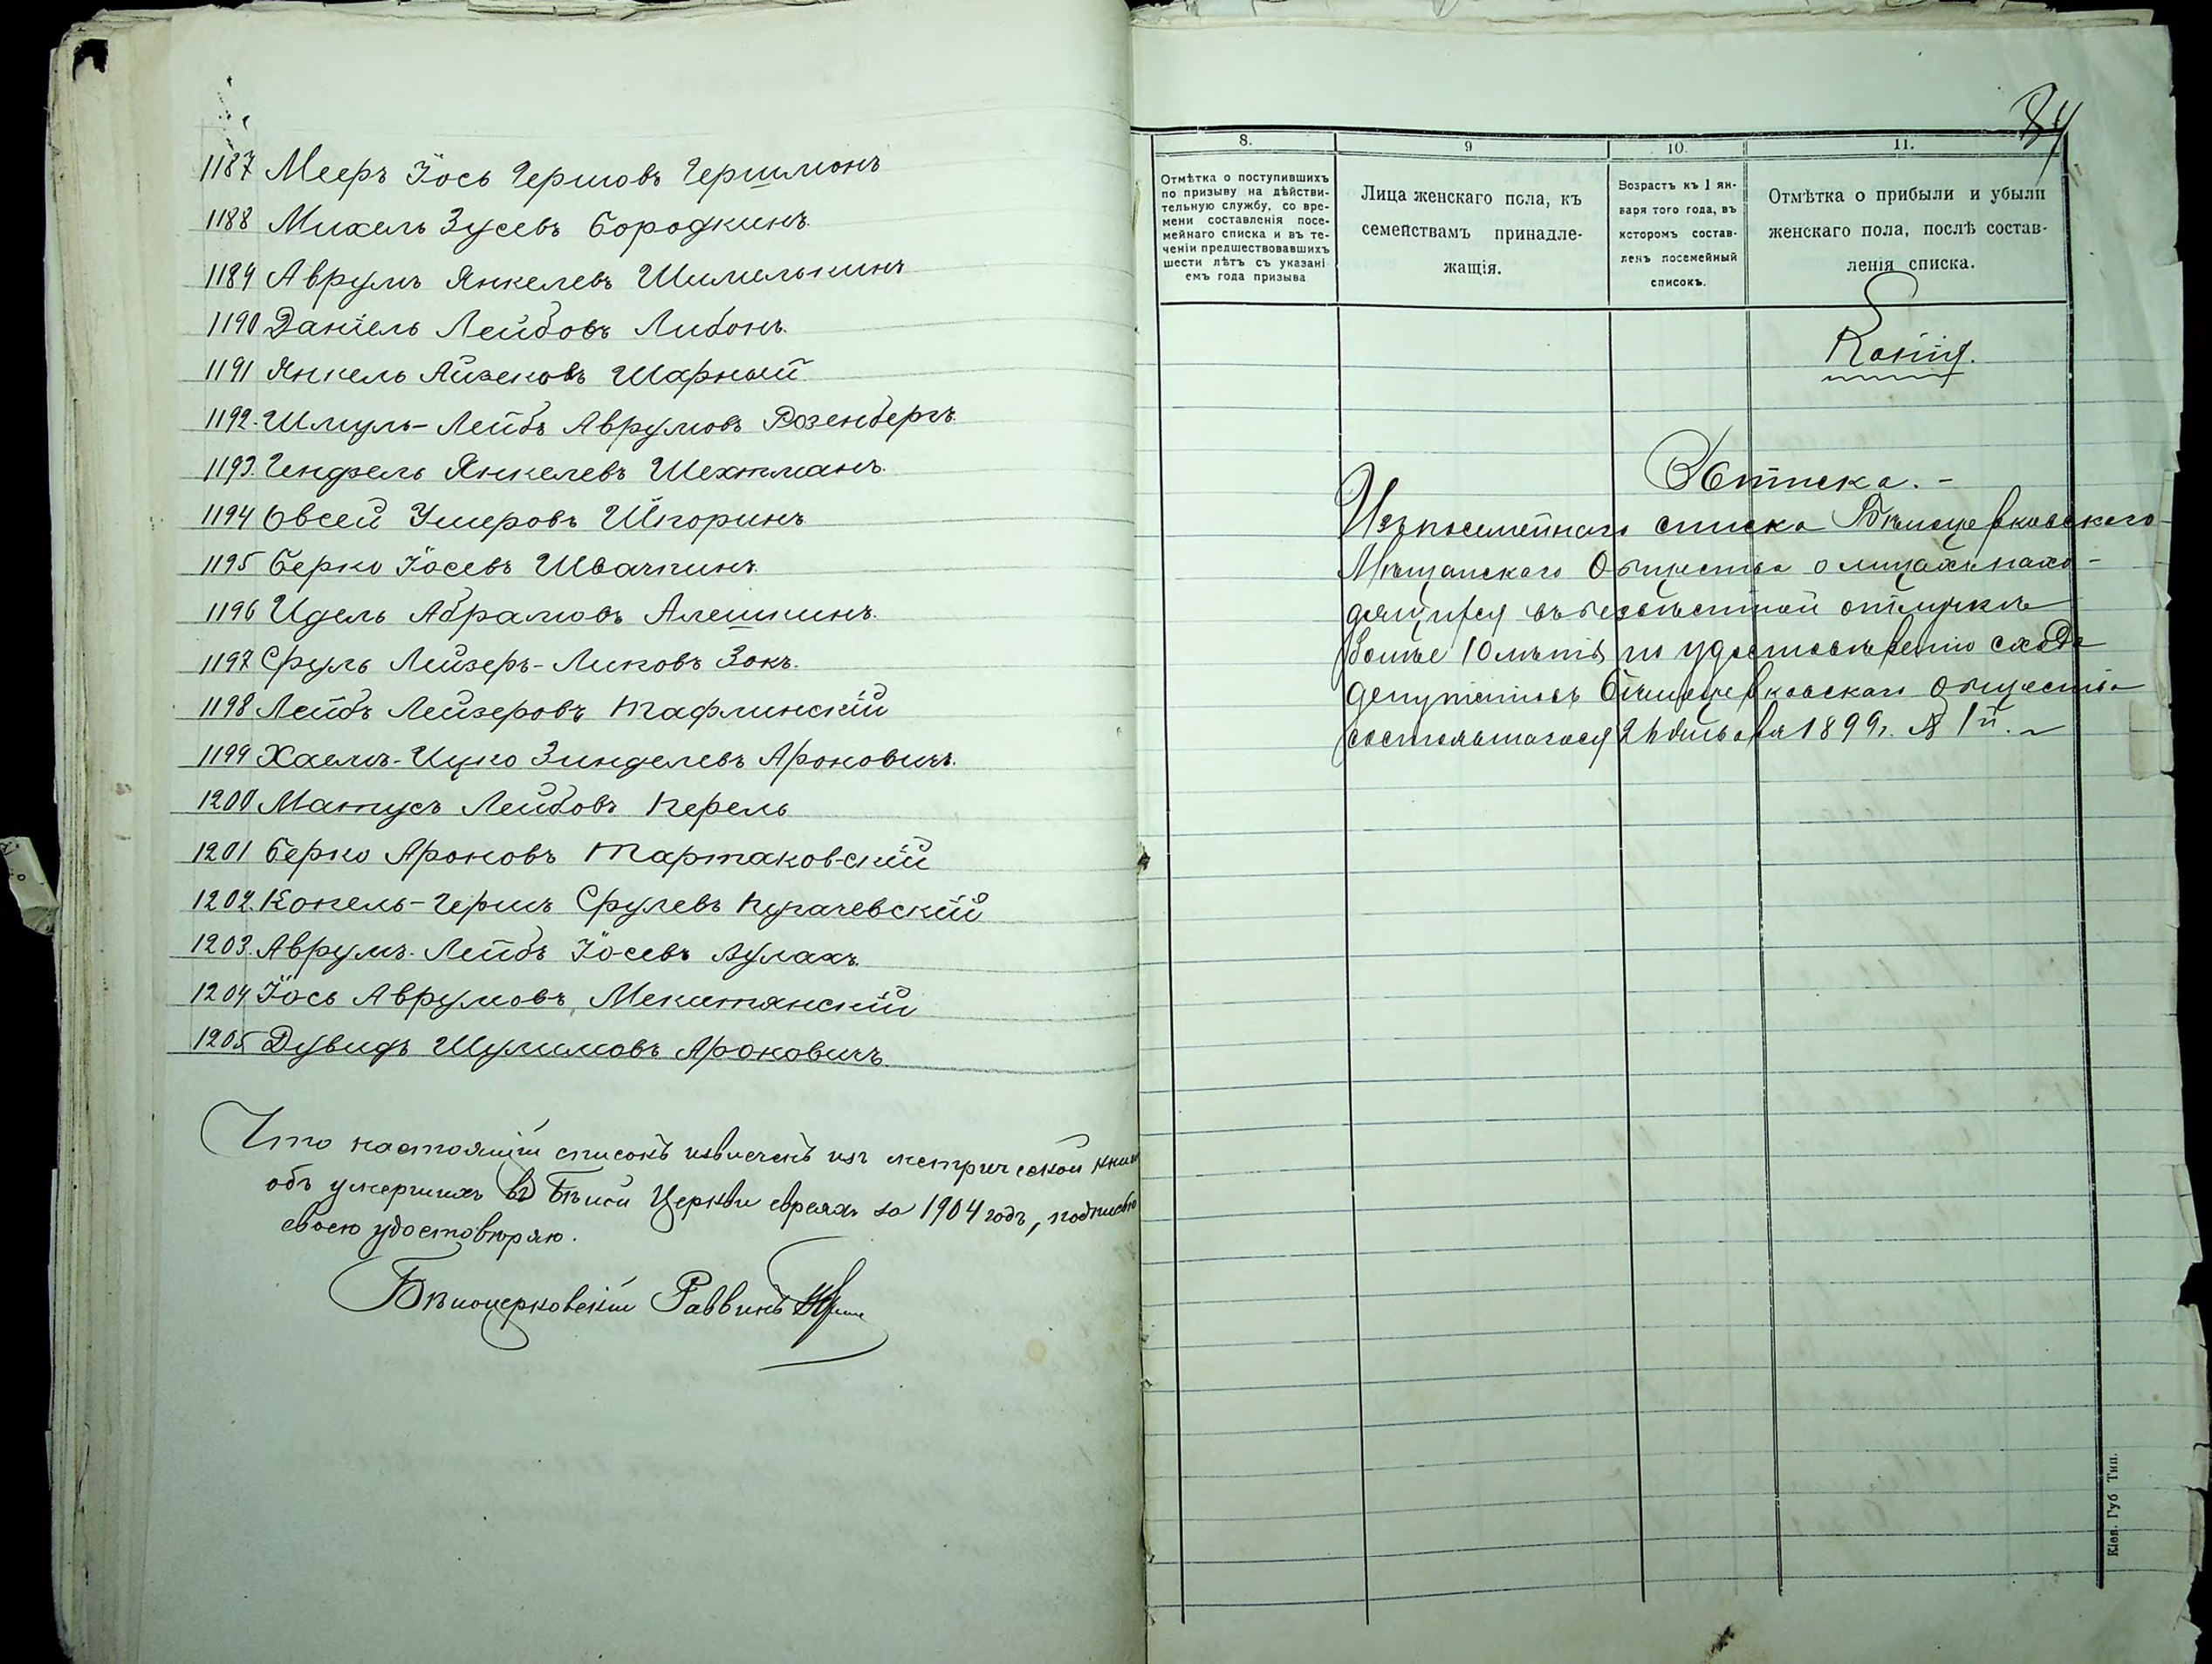 1187 Мееръ Іось Гершовъ Гершмонъ
1188 Михель Зусевъ Бородкинъ.
1189 Аврумъ Янкелевъ Шимилькинъ
1190 Даніель Лейбовъ Либонъ.
1191 Янкель Айзековъ Шарный
1192. Шмуль-Лейбъ Аврумовъ Розенбергъ.
1193. Гендзель Янкелевъ Шехтманъ.
1194 Овсей Умеровъ Шкоринъ
1195 Берко Іосевъ Швачкинъ.
1196 Идель Абрамовъ Алешкинъ.
1197 Сруль Лейзеръ-Липовъ Зокъ.
1198 Лейбъ Лейзеровъ Тафлинскій
1199 Хаемъ-Ицко Зинделевъ Ароновичъ.
1200 Матусъ Лейбовъ Перель
1201 Берко Ароновъ Тартаковскій
1202. Копель-Гершъ Срулевъ Пугачевскій
1203. Аврумъ-Лейбъ Іосевъ Аулахъ.
1204 Іось Аврумовъ Мекитянскій
1205 Дувидъ Шулимовъ Ароновичъ.
Что настоящій списокъ извлеченъ изъ метрической книги
объ умершихъ въ Бѣлой Церкви евреяхъ за 1904 годъ, подписью
своею удостовѣряю.
Бѣлоцерковскій Раввинъ
84
8. 9 10. 11.
Отмѣтка о поступившихъ
по призыву на дѣйстви-
тельную службу, со вре-
мени составленія посе-
мейнаго списка и въ те-
ченіи предшествовавшихъ
шести лѣтъ съ указані
емъ года призыва
Лица женскаго пола, къ
семействамъ принадле-
жащія.
Возрастъ къ 1 ян-
варя того года, въ
которомъ состав-
ленъ посемейный
списокъ.
Отмѣтка о прибыли и убыли
женскаго пола, послѣ состав-
ленія списка.
Копія.
Выписка. -
Изъ посемейнаго списка Бѣлоцерковскаго
Мѣщанскаго Общества о лицахъ нахо-
дящихся въ безвѣстной отлучкѣ
болѣе 10 лѣтъ по удостовѣренію схода
депутатовъ Бѣлоцерковскаго общества
состоявшагося 2 1899г. № 1й.
Кіев. Губ Тип.